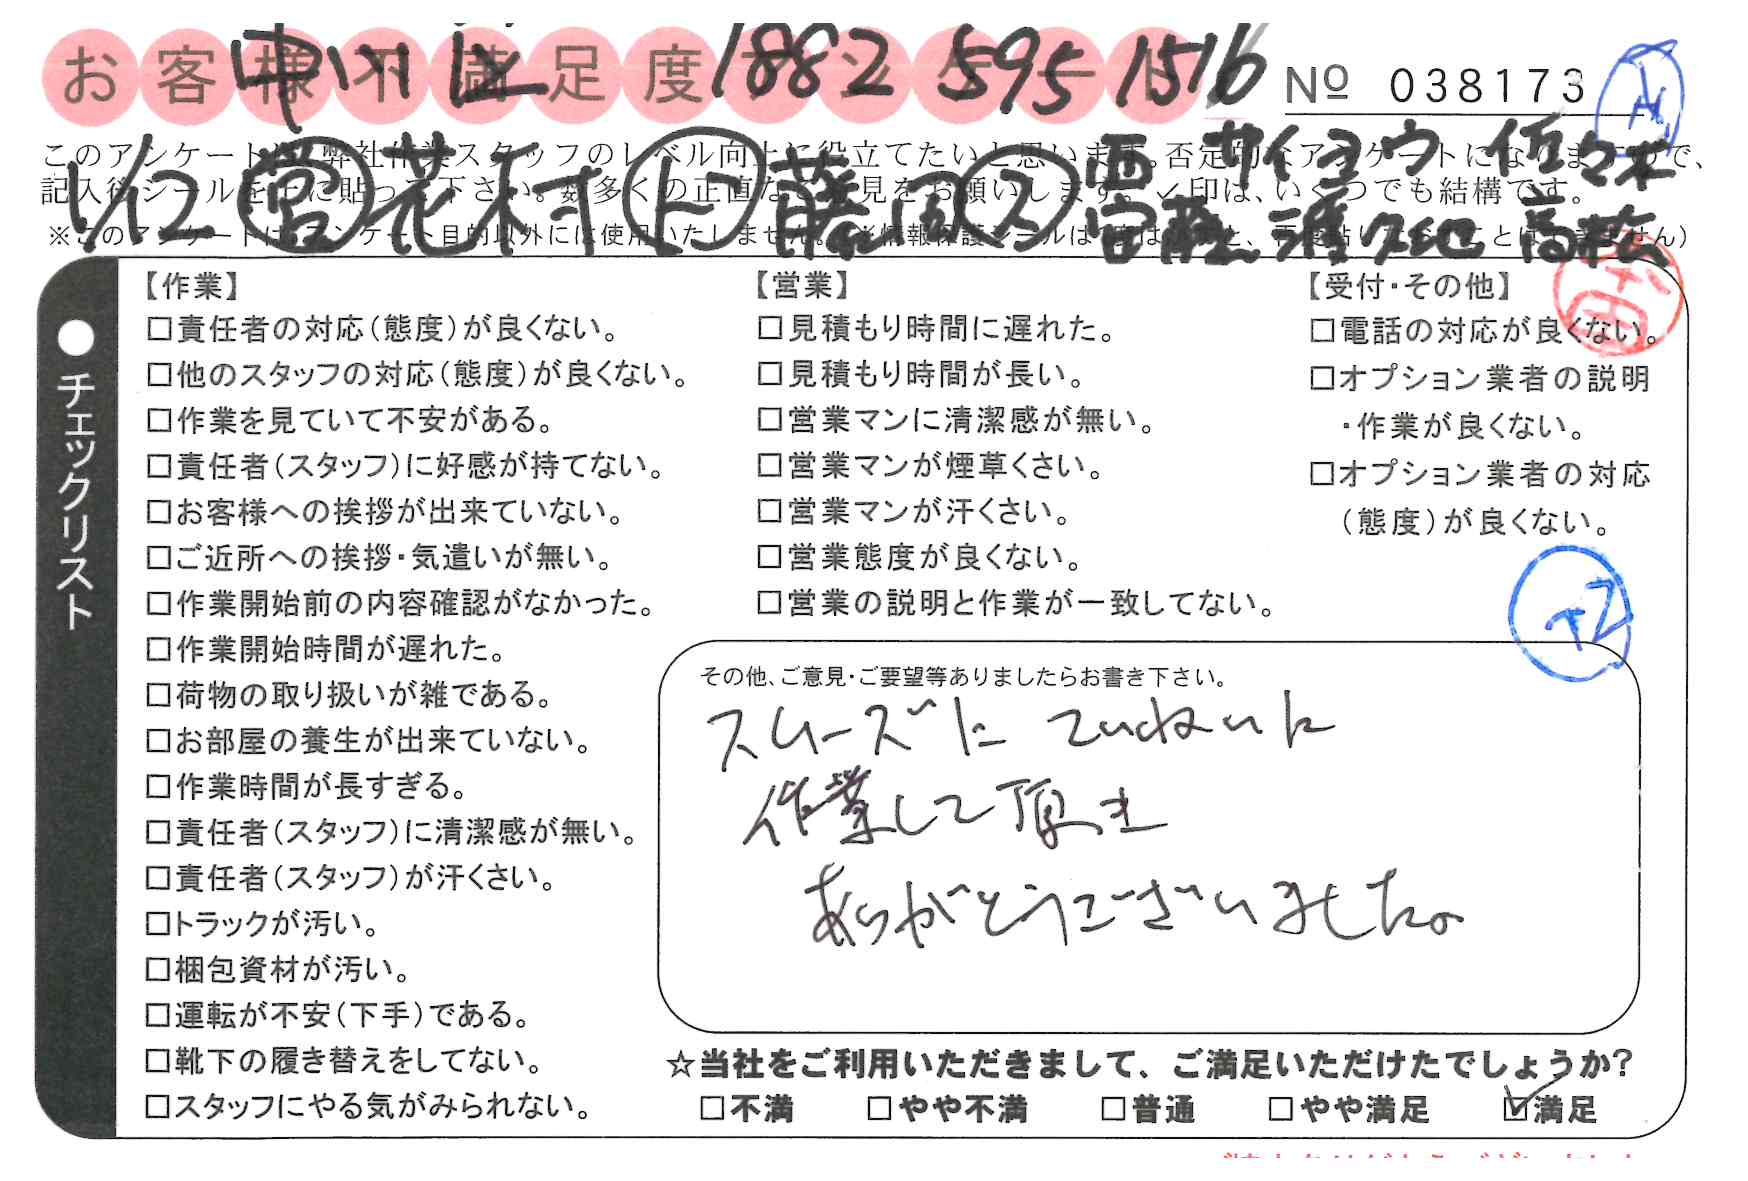 お客様不満足度アンケート
中川区 1882 595 1516
№ 038173
このアンケートは、弊社作業スタッフのレベル向上に役立てたいと思います。否定的なアンケートになりますので、
記入後シールを上に貼って下さい。数多くの正直なご意見をお願いします。✓印は、いくつでも結構です。
※このアンケートは、アンケート目的以外には使用いたしません。
1/12 営 花村 ト 藤 ス
チェックリスト
【作業】
□責任者の対応(態度)が良くない。
□他のスタッフの対応(態度)が良くない。
□作業を見ていて不安がある。
□責任者(スタッフ)に好感が持てない。
□お客様への挨拶が出来ていない。
□ご近所への挨拶・気遣いが無い。
□作業開始前の内容確認がなかった。
□作業開始時間が遅れた。
□荷物の取り扱いが雑である。
□お部屋の養生が出来ていない。
□作業時間が長すぎる。
□責任者(スタッフ)に清潔感が無い。
□責任者(スタッフ)が汗くさい。
□トラックが汚い。
□梱包資材が汚い。
□運転が不安(下手)である。
□靴下の履き替えをしてない。
□スタッフにやる気がみられない。
【営業】
□見積もり時間に遅れた。
□見積もり時間が長い。
□営業マンに清潔感が無い。
□営業マンが煙草くさい。
□営業マンが汗くさい。
□営業態度が良くない。
□営業の説明と作業が一致してない。
【受付・その他】
□電話の対応が良くない。
□オプション業者の説明
・作業が良くない。
□オプション業者の対応
(態度)が良くない。
その他、ご意見・ご要望等ありましたらお書き下さい。
スムーズに ていねいに
作業して頂き
ありがとうございました。
☆当社をご利用いただきまして、ご満足いただけたでしょうか?
□不満 □やや不満 □普通 □やや満足 ☑満足